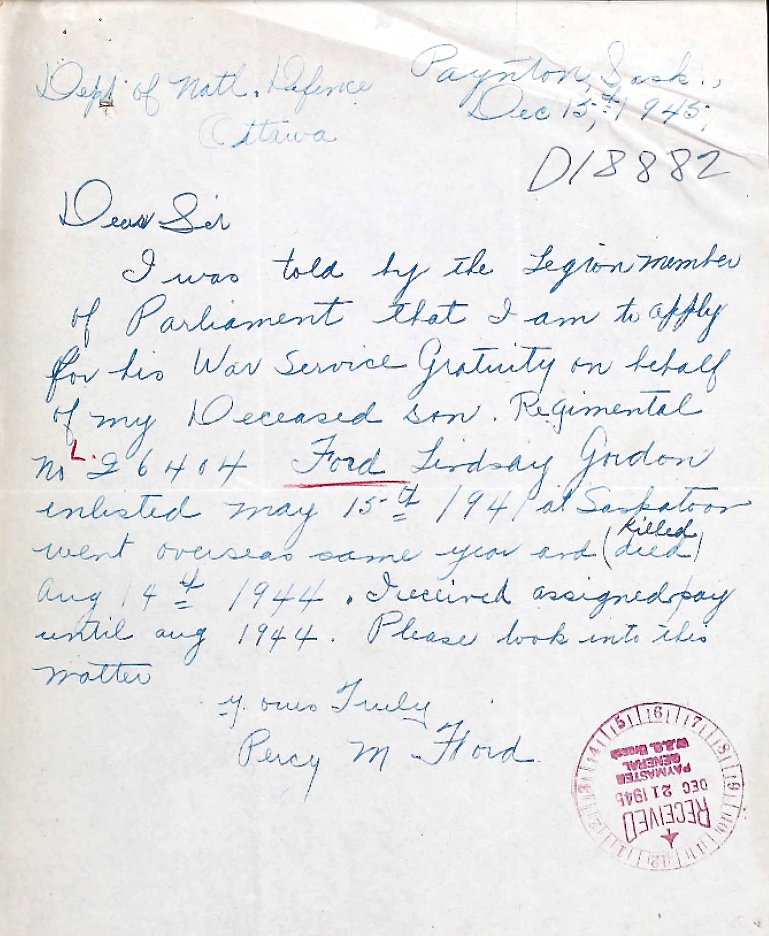 Dept of Natl. Defence
Ottawa
Paynton, Sask.,
Dec 15th, 1945,
D18882
Dear Sir
I was told by the Legion member
of Parliament that I am to apply
for his War Service Gratuity on behalf
of my Deceased son. Regimental
no L. 26404 Ford Lindsay Gordon
enlisted may 15th 1941 at Saskatoon
Killed
went overseas same year and (died)
Aug 14th 1944. I received assigned pay
until aug 1944. Please look into this
matter
yours Truly
Percy M Ford.
RECEIVED
DEC 21 1945
PAYMASTER
GENERAL
W.S.G. Branch